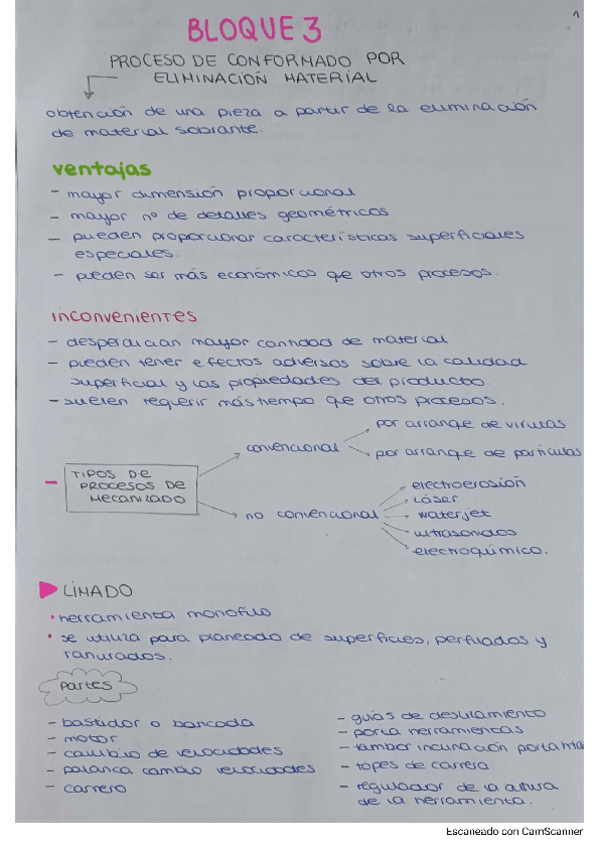 1
BLOQUE 3
PROCESO DE CONFORMADO POR
ELIMINACIÓN MATERIAL
obtención de una pieza a partir de la eliminación
de material sobrante.
ventajas
- mayor dimensión proporcional
- mayor nº de detalles geométricos
- pueden proporcionar características superficiales
especiales.
- pueden ser más económicos que otros procesos.
inconvenientes
- desperdician mayor cantidad de material
- pueden tener efectos adversos sobre la calidad
superficial y las propiedades del producto.
- suelen requerir más tiempo que otros procesos.
- TIPOS DE
PROCESOS DE
MECANIZADO
convencional
por arranque de virutas
por arranque de partículas
no convencional
electroerosión
láser
waterjet
ultrasonidos
electroquímico.
LIMADO
• herramienta monofilo
• se utiliza para planeado de superficies, perfilados y
ranurados.
Partes
- bastidor o bancada
- motor
- cambio de velocidades
- palanca cambio velocidades
- carrero
- guías de deslizamiento
- porta herramientas
- tambor inclinación porta
- topes de carrera
- regulador de la altura
de la herramienta.
Escaneado con CamScanner